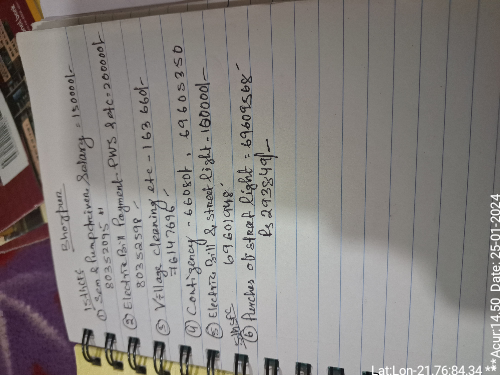 Bhojpur
15th SFC
① Sem & Pumpdriver Salary = 150000/-
80352095 "
② Electric Bill Payment - PWS & etc = 200000/-
80352598 -
③ Village cleaning etc - 163660/-
76147696 -
④ Contigency - 66080/-, 69605350
⑤ Electric Bill & Street light = 100000/-
69601948
5th SFC
⑥ Purches of street light = 69609568
Rs 293849/-
Lat:Lon-21.76:84.34
**Acur:14.50 Date: 25-01-2024